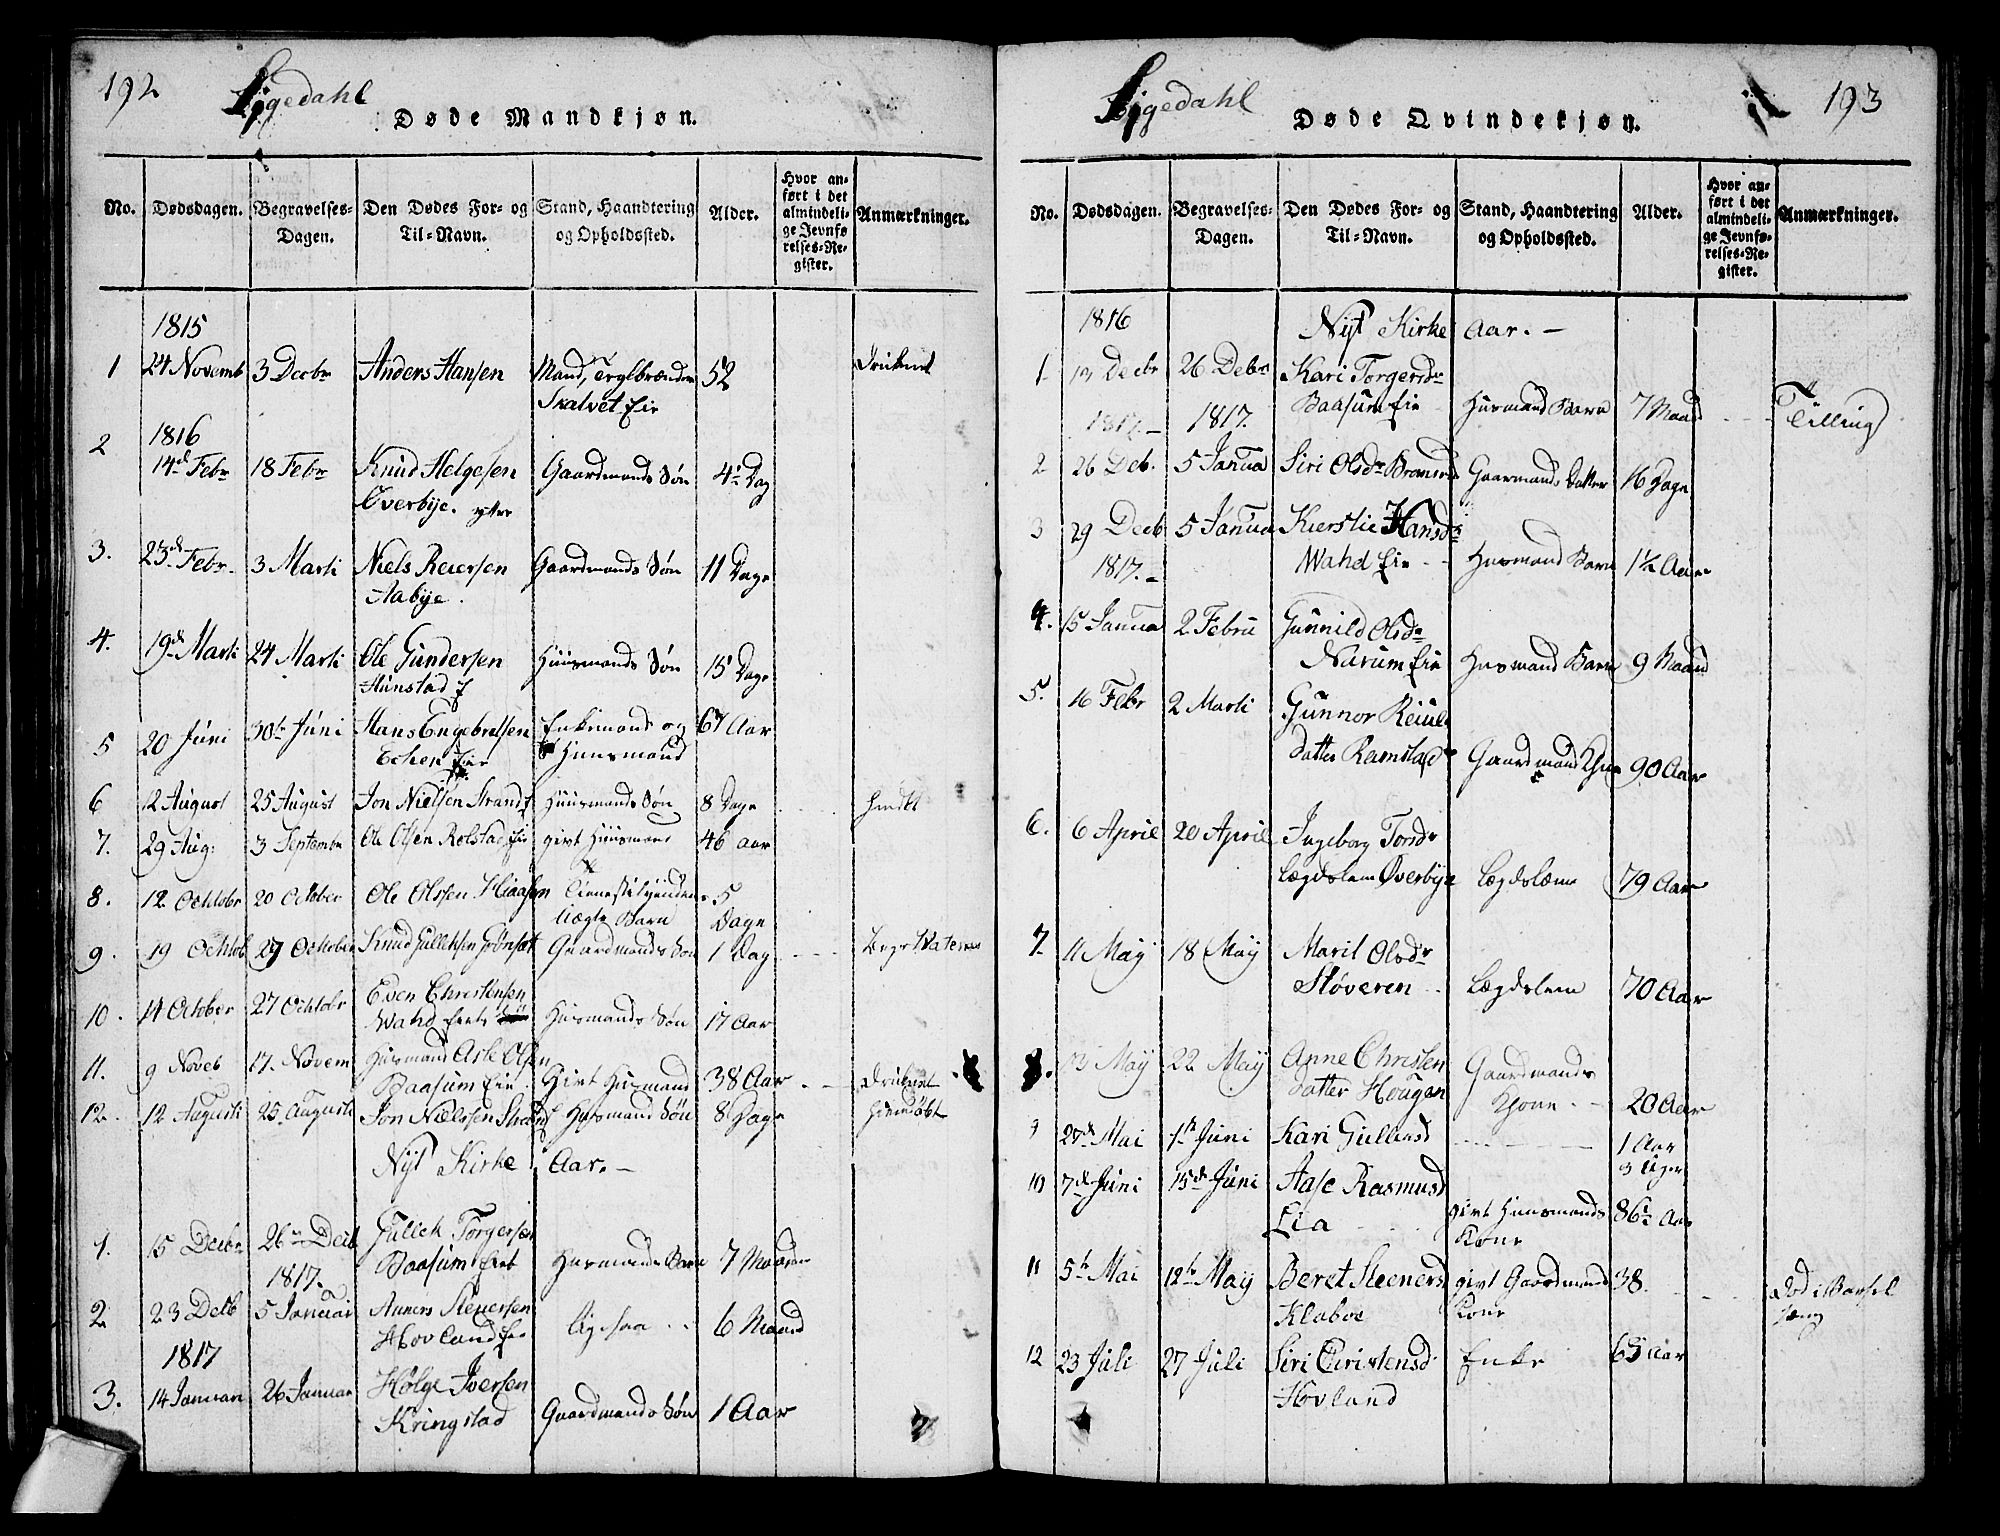 192
Sigedahl
Døde Mandkjøn.
No. Dødsdagen. Begravelses-Dagen. Den Dødes For- og Til-Navn. Stand, Haandtering og Opholdssted. Alder. Hvor anført i det almindelige Jevnførelses-Register. Anmærkninger.
1815
1 24 Novemb 3 Decbr Anders Hansen Mand, Teglbrænder 52 Druknet
Skalvet Eie
1816
2 14de Febr 18 Febr Knud Helgesen Gaardmands Søn 4 Dag
Overbye. ytre
3. 23de Febr. 3 Marti Niels Reiersen Gaardmands Søn 11 Dage
Aabye.
4. 19de Marti 24 Marti Ole Gundersen Huusmands Søn 15 Dage
Hunstad E
5 20 Juni 30te Juni Hans Engebretsen Enkemand og 67 Aar
Echen Eie Huusmand
6 12 August 25 August Jon Nielsen Strand E Huusmands Søn 8 Dage
7. 29 Aug: 3 Septembr Ole Olsen Rolstad Eie givt Huusmand 46 aar
8. 12 Octobr 20 October Ole Olssen Hiaasen 5
Uægte Barn Dage
9. 19 Octob 27 October Knud Gulleksen Gaardmands Søn 1 Dag
10. 14 October 27 Octobr Even Christensen
Wahd Eiets Husmands Søn 17 Aar
11. 9 Noveb 17. Novem Husmand Asle Olsen
Baasum Eie. Givt Husmand 38 Aar Druknet
12. 12 Augusti 25 Augusti Jon Nielssen Strand E Husmand Søn 8 Dage Hiemdøbt
Nyt Kirke Aar. -
1. 15 Decbr 26 Decb Gullek Torgersen
Baasum Eiet Husmands Barn 7 Maaneder
1817.
2. 23 Decb 5 Januar Anners Steensen
Hovland Eie ligesaa 6 Maand
1817
3. 14 Januari 26 Januar Helge Iversen
Kringstad Gaardmands Søn 1 Aar
193
Sigedahl
Døde Qvindekjøn.
No. Dødsdagen. Begravelses-Dagen. Den Dødes For- og Til-Navn. Stand, Haandtering og Opholdssted. Alder. Hvor anført i det almindelige Jevnførelses-Register. Anmærkninger.
1816 Nyt Kirke Aar. -
1 13 Decbr 26 Debr Kari Torgersdr
Baasum Eie Husmand Barn 7 Maand Tvilling
1817. 1817.
2 26 Deb. 5 Janua Siri Olsdr Gaarmands Datter 16 Dage
3 29 Decb 5 Janua Kierstie Hansdr
1817. - Wahd Eie Husmand Barn 1½ Aar
4. 15 Janua 2 Febru Gunnild Olsdr
Narum Eie Husmand Barn 9 Maand
5. 16 Febr 2 Marti Gunnor Reiuls
datter Ramstad Gaardmand Khone 90 Aar
6. 6 April 20 April Ingeborg Torsdr
Lægdslem Øverbye Lægdslæm 79 Aar
7. 11 Maÿ 18 Maÿ Marit Olsdr
Støveren Lægdslem 70 Aar
8. 13 Maÿ 22 Maÿ Anne Christen Gaardmands
datter Hougen Khone 20 Aar
9 27de Mai 1te Juni Kari Gulliksd 1 Aar
3 Uger
10 7de Juni 15de Juni Aase Rasmusd givt Huusmands 86½ Aar
Lia Kone
11 5te Mai 12te Maÿ Beret Steenersd givt Gaardmand 38 Død i Barsel
Klaboe Kone Seng
12 23 Juli 27 Juli Siri Christensd Enke 65 aar
Hovland